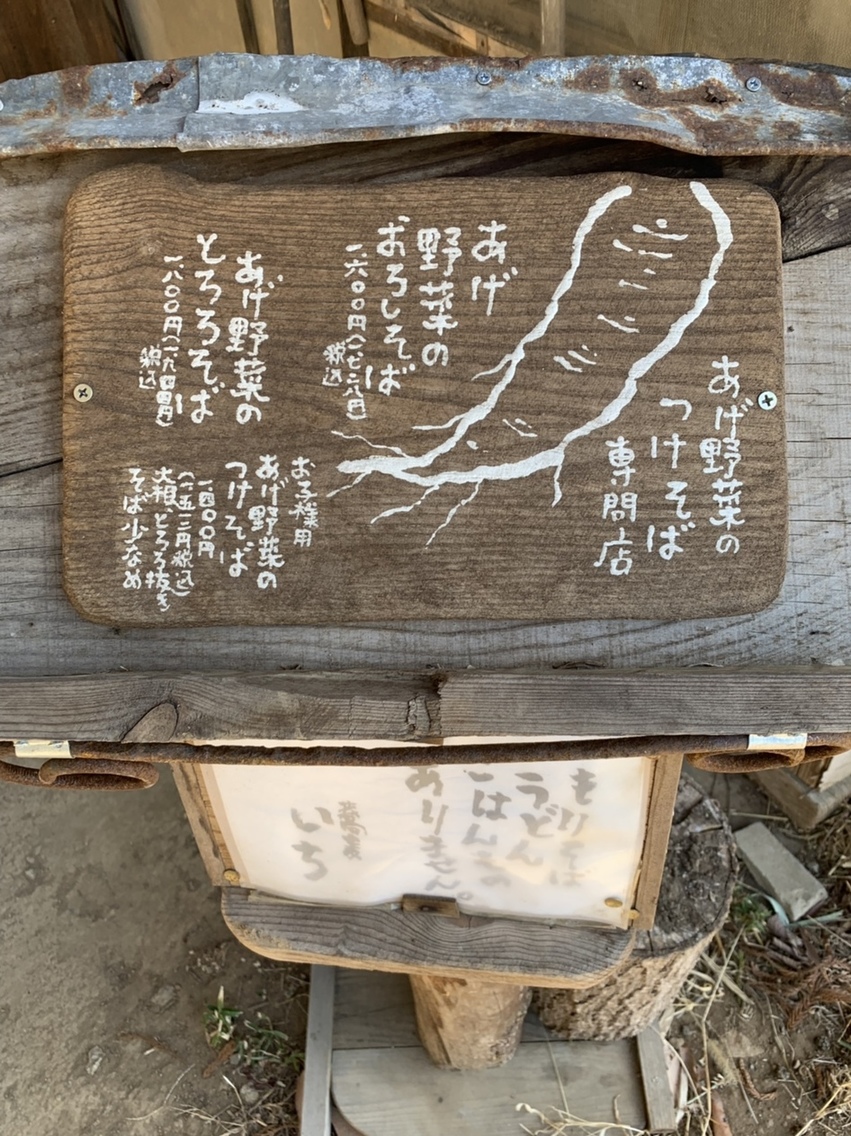 あげ野菜の
つけそば
専門店
あげ
野菜の
おろしそば
一六〇〇円(一七二八円)
税込
あげ野菜の
とろろそば
一八〇〇円(一九四四円)
税込
お子様用
あげ野菜の
つけそば
一四〇〇円
(一五一二円税込)
大根とろろ抜き
そば少なめ
もりそば
うどん
ごはんもの
ありません。
蕎麦
いち